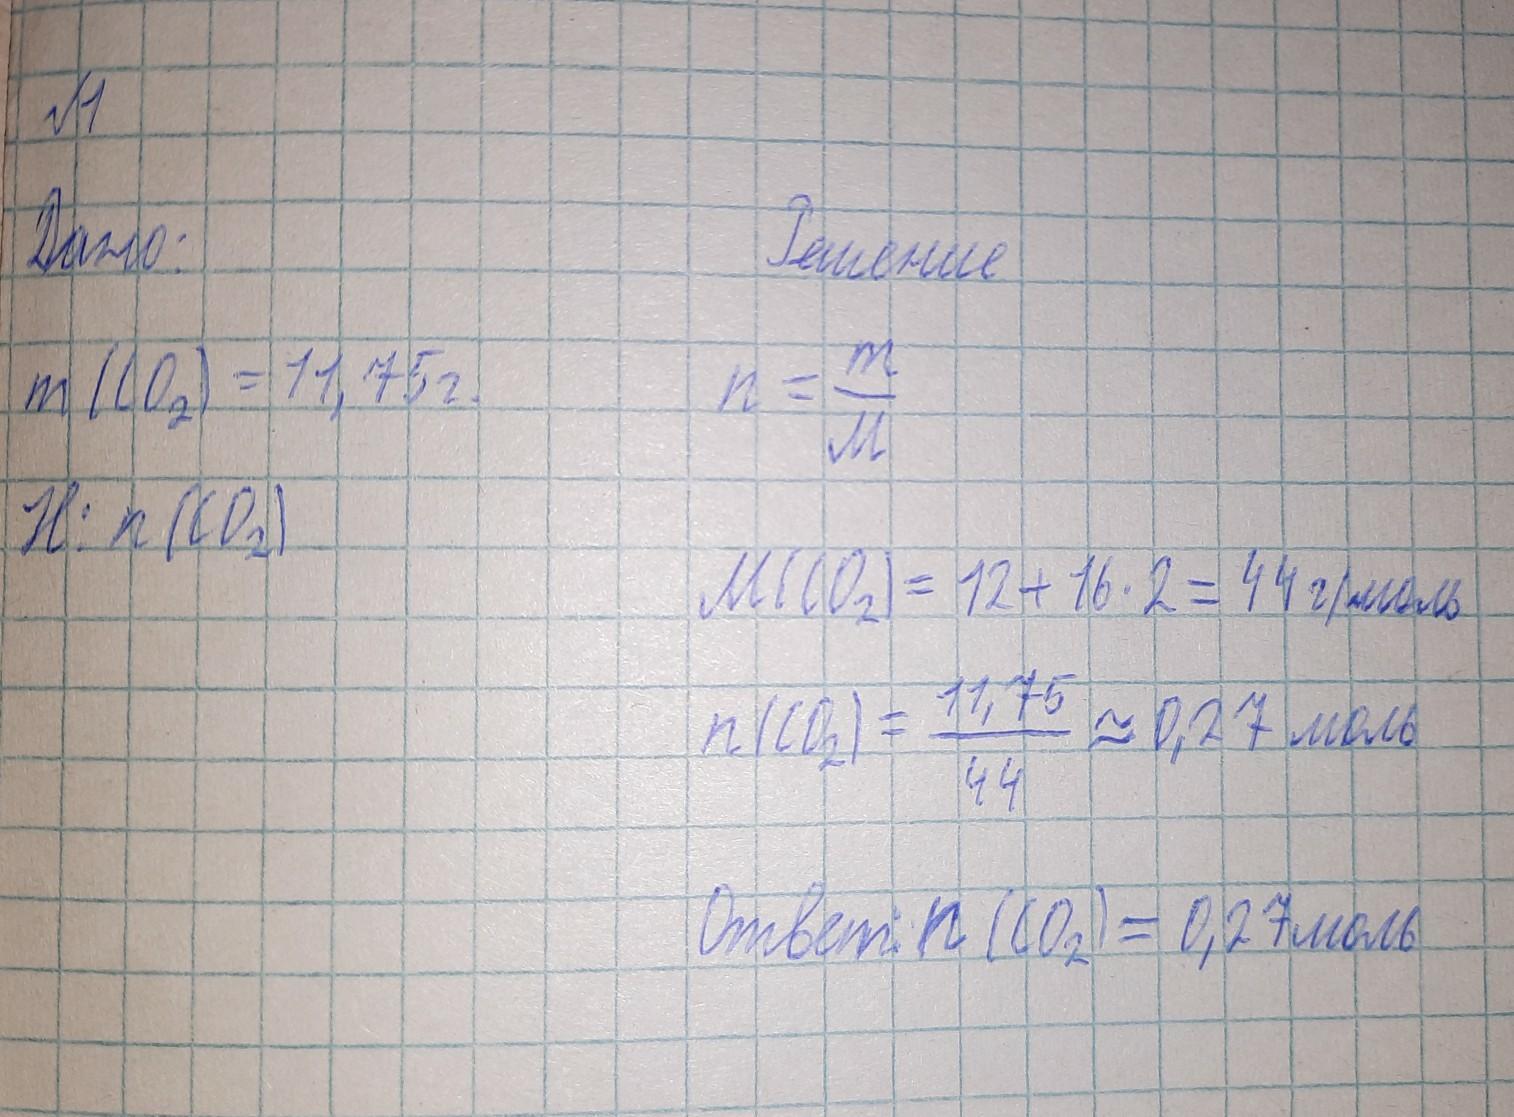 №1
Дано:
m(CO₂) = 11,75г.
Н: n(CO₂)
Решение
n = m/M
M(CO₂) = 12 + 16 · 2 = 44 г/моль
n(CO₂) = 11,75/44 ≈ 0,27 моль
Ответ: n(CO₂) = 0,27 моль